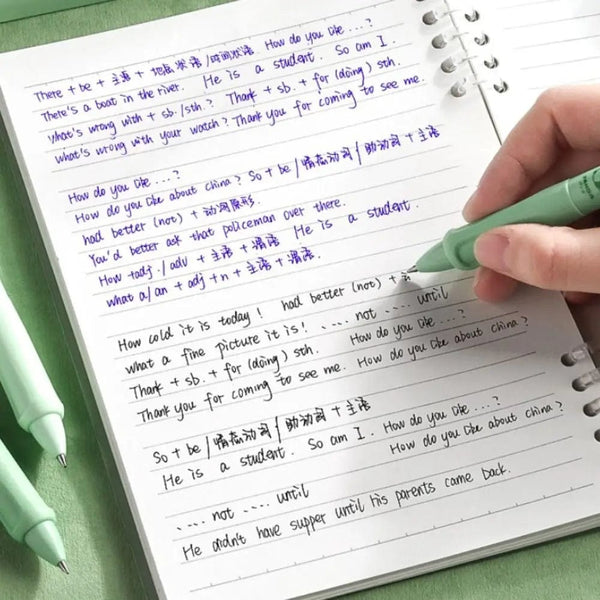 There + be + 主语 + 地点状语/时间状语. How do you like ...?
There's a boat in the river. He is a student. So am I.
What's wrong with + sb./sth.? Thank + sb. + for (doing) sth.
What's wrong with your watch? Thank you for coming to see me.
How do you like ...?
How do you like about china? So + be / 情态动词 / 助动词 + 主语
had better (not) + 动词原形.
You'd better ask that policeman over there.
How +adj./adv + 主语 + 谓语 He is a student.
what a/an + adj +n + 主语 + 谓语.
How cold it is today! had better (not) + 动
what a fine picture it is! .... not .... until
Thank + sb. + for (doing) sth. How do you like ...?
Thank you for coming to see me. How do you like about china?
So + be / 情态动词 / 助动词 + 主语
He is a student. So am I. How do you like ...?
How do you like about china?
.... not .... until
He didn't have supper until his parents came back.